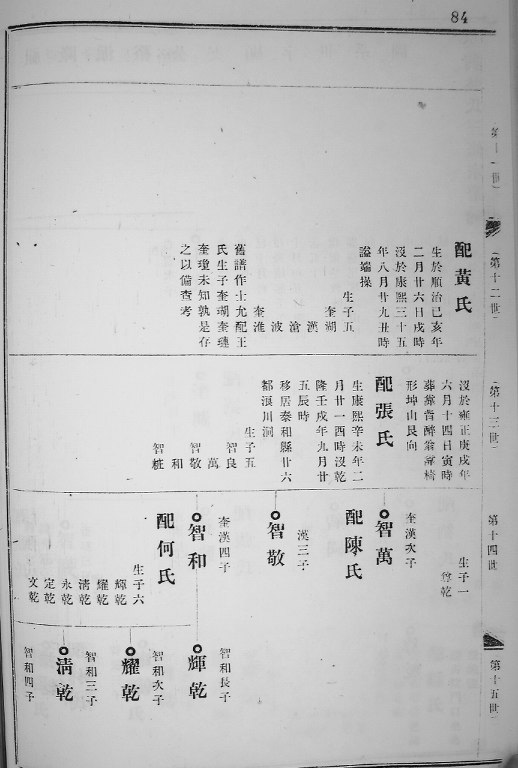 84
第十一世
第十二世
配黃氏
生於順治己亥年
二月廿六日戌時
沒於康熙三十五
年八月廿九丑時
謚端操
生子五
奎湖
漢
滄
波
奎淮
舊譜作士允配王
氏生子奎瑚奎璉
奎瓊未知孰是存
之以備查考
第十三世
沒於雍正庚戌年
六月十四日寅時
形坤山艮向
配張氏
生康熙辛未年二
月廿一酉時沒乾
隆壬戌年九月廿
五辰時
移居泰和縣廿六
都浪川洞
生子五
智良
萬
智敬
和
智
第十四世
生子一
尊乾
奎漢次子
智萬
配陳氏
漢三子
智敬
奎漢四子
智和
配何氏
生子六
輝乾
耀乾
清乾
永乾
定乾
文乾
第十五世
智和長子
輝乾
智和次子
耀乾
智和三子
清乾
智和四子